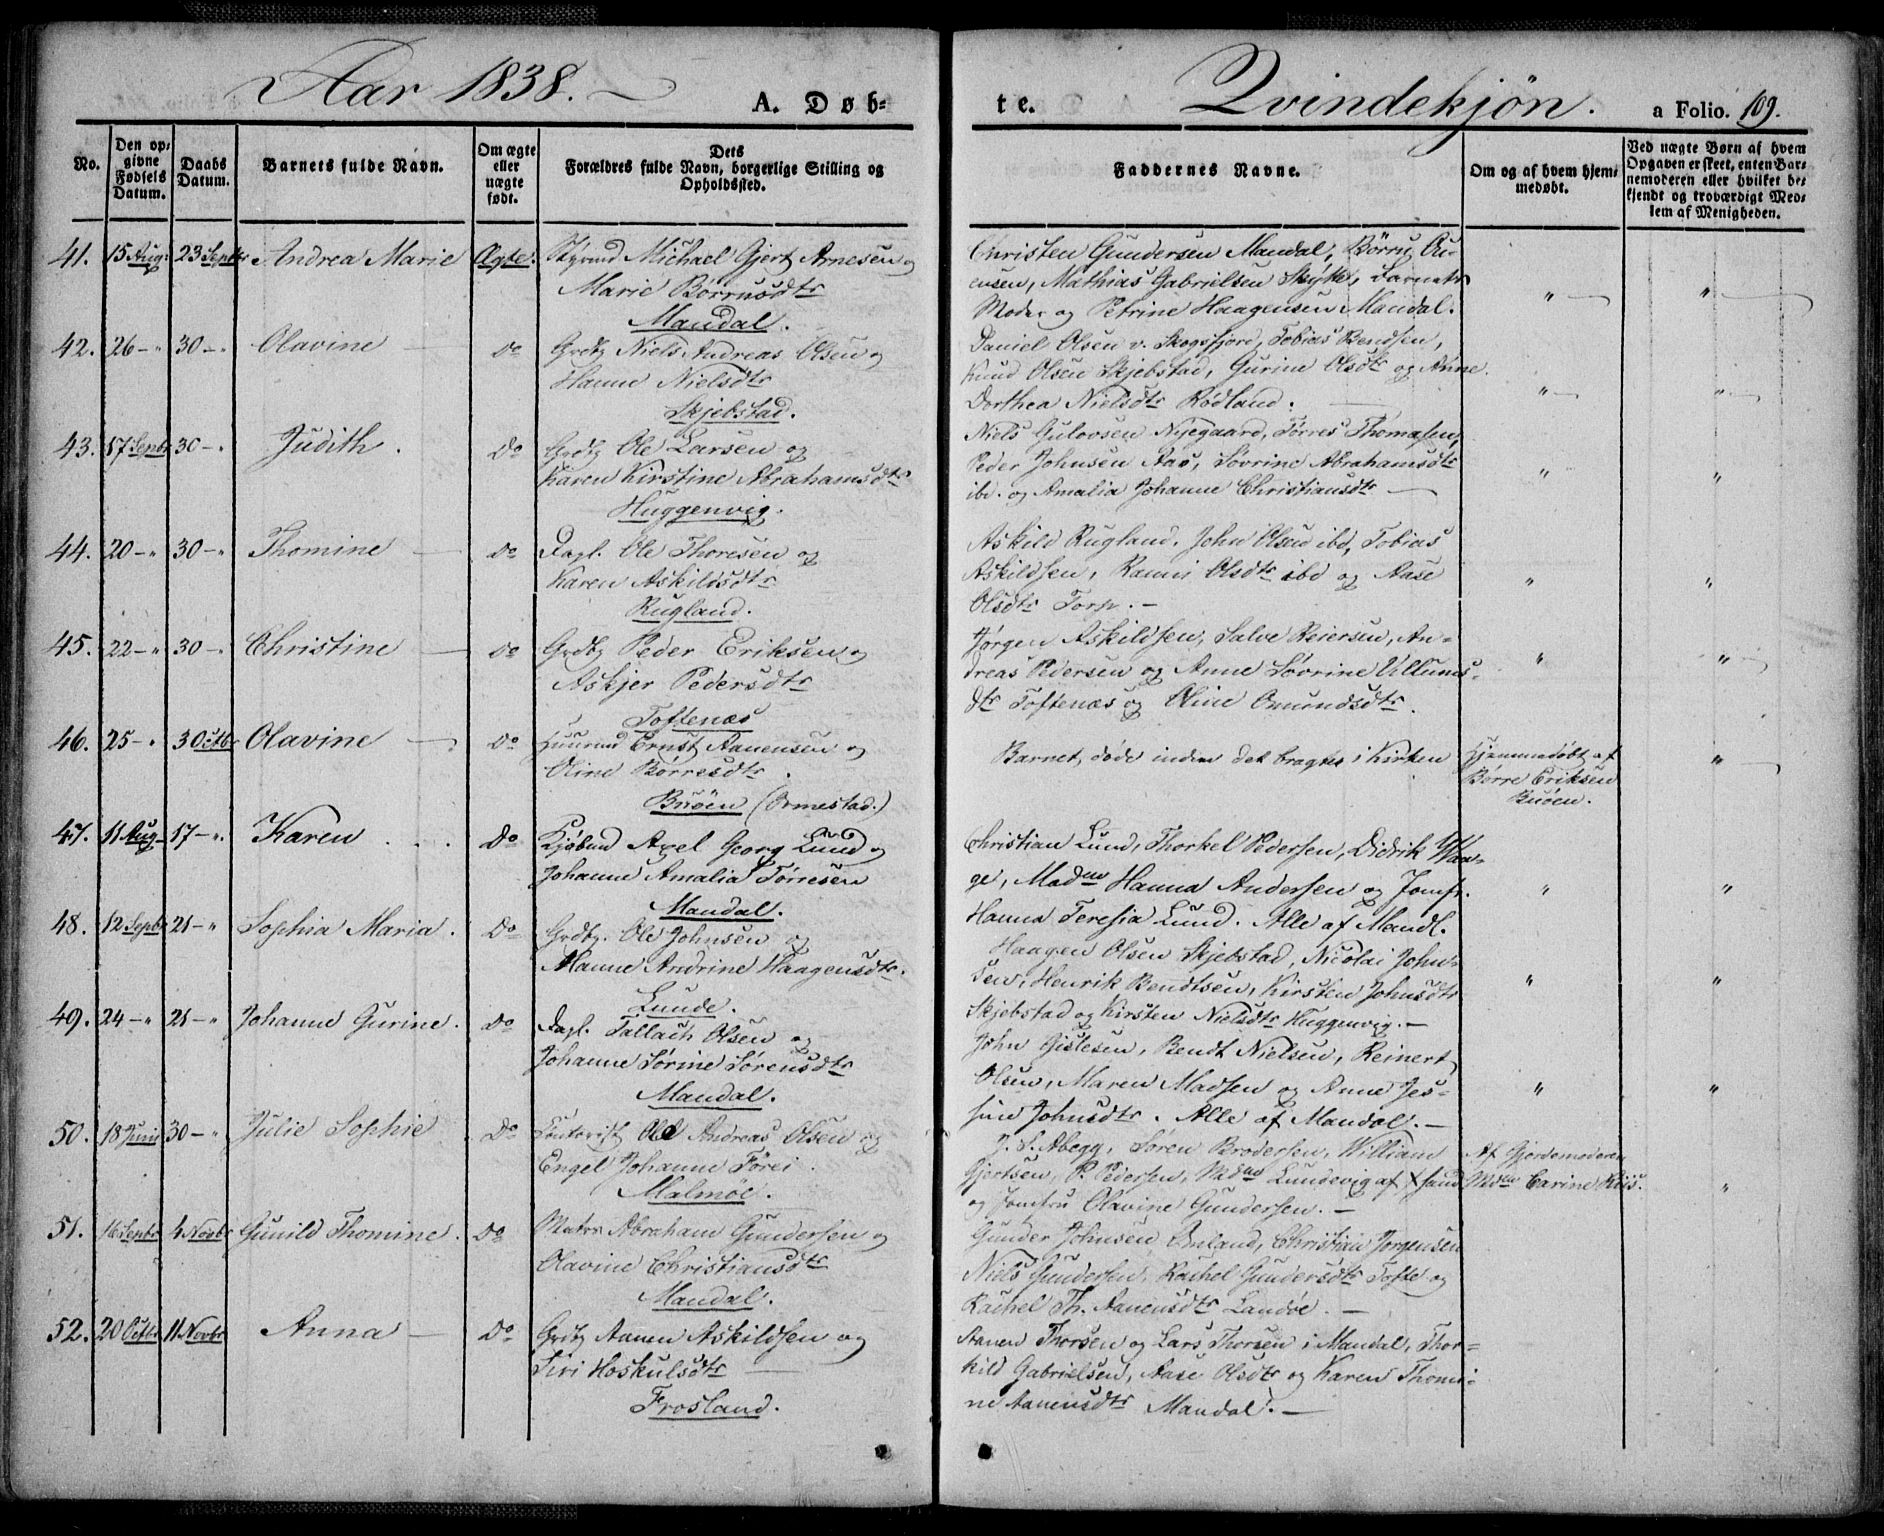 Aar 1838. A. Døb-
te. Qvindekjön. a Folio. 109.
No.
Den op-
givne
Fødsels
Datum.
Daabs
Datum.
Barnets fulde Navn.
Om ægte
eller
uægte
født.
Dets
Forældres fulde Navn, borgerlige Stilling og
Opholdssted.
Faddernes Navne.
Om og af hvem hjem-
medøbt.
Ved uægte Børn af hvem
Opgaven er skeet, enten Bar-
nemoderen eller hvilket be-
kjendt og troværdigt Med-
lem af Menigheden.
41. 15 Aug. 23 Septbr Andrea Marie Ægte. Michael Gjert Arnesen og
Marie Börrusdtr
Mandal.
Christen Gundersen Mandal, Börru
Mathias Gabrielsen Skytte, Barnets
Moder og Petrine Haagensen Mandal.
" "
42. 26 - " 30 - " Olavine Do Grdbg Niels Andreas Olsen og
Hanne Nielsdtr
Skjebstad.
Daniel Olsen v. Skogsfjord, Tobias Bendsen,
Knud Olsen Skjebstad, Gurine Olsdtr og Anne
Dorthea Nielsdtr Rödland.
" "
43. 17 Septbr 30 - " Judith. Do Grdbg Ole Larsen og
Karen Kirstine Abrahamsdtr
Huggenvig.
Niels Gulovsen Nyegaard, Törres Thomasen,
Peder Johnsen Aas, Sovrine Abrahamsdtr
ibd. og Amalia Johanne Christiansdtr
" "
44. 20 - " 30 - " Thomine Do Dagl. Ole Thoresen og
Karen Askildsdtr
Rugland.
Askild Rugland, John Olsen ibd, Tobias
Askildsen, Olsdtr ibd og Aase
Olsdtr Torp. -
" "
45. 22 - " 30 - " Christine Do Grdbg Peder Eriksen og
Askjer Pedersdtr
Toftenæs
Jørgen Askildsen, Salve Reiersen, An-
dreas Pedersen og Anne Sovrine Villums-
dtr Toftenæs og Oline Omundsdtr.
" "
46. 25 - " 3 Octbr Olavine Do Huusmd Ernst Aanensen og
Oline Börresdtr.
Buöen (Ormestad.)
Barnet döde inden det bragtes i Kirken
Hjemmedöbt af
Børre Eriksen
Buöen.
"
47. 11 Aug 17 - " Karen Do Kjöbmd Axel Georg Lund og
Johanne Amalia Törresen
Mandal.
Christian Lund, Thorkel Pedersen, Didrik Waa-
ge, Maden Hanna Andersen og Jomfr.
Hanna Teresia Lund. Alle af Mandl.
" "
48. 12 Septbr 21 - " Sophia Maria. Do Grdbg. Ole Johnsen og
Hanne Andrine Haagensdtr.
Lunde.
Haagen Olsen Skjebstad, Nicolai John-
sen, Henrik Bendtsen, Kirsten Johnsdtr
Skjebstad og Kirsten Nielsdtr Huggenvig. -
" "
49. 24 - " 21 - " Johanne Gurine. Do Dagl. Tallach Olsen og
Johanne Sörine Sörensdtr
Mandal.
John Gislesen, Bendt Nielsen, Reinert
Olsen, Maren Madsen og Anne Jes-
sine Johnsdtr. Alle af Mandal. -
" "
50. 18 Juni 30 - " Julie Sophie Do Contorist Ole Andreas Olsen og
Engel Johanne
Malmöe.
J. S. Abegg, Sören Brodersen, William
Gjertsen, P. Pedersen, Maden Lundevig af
og Jomfru Olavine Gundersen. -
Af Gjordemoderen
Mden Carine
"
51. 16 Septbr 4 Novbr Gunild Thomine. Do Matrs Abraham Gundersen og
Olavine Christiansdtr
Mandal.
Gunder Johnsen Christian Jörgensen
Niels Gundersen, Rachel Gundersdtr Tofte og
Rachel Th. Aanensdtr Landöe. -
52. 20 Octbr 11 Novbr Anna Do Grdbg Aanen Askildsen og
Siri Hoskulsdtr
Frosland.
Aanen Thorsen og Lars Thorsen i Mandal, Thor-
kild Gabrielsen, Aase Olsdtr og Karen Thomi-
ne Aanensdtr Mandal. -